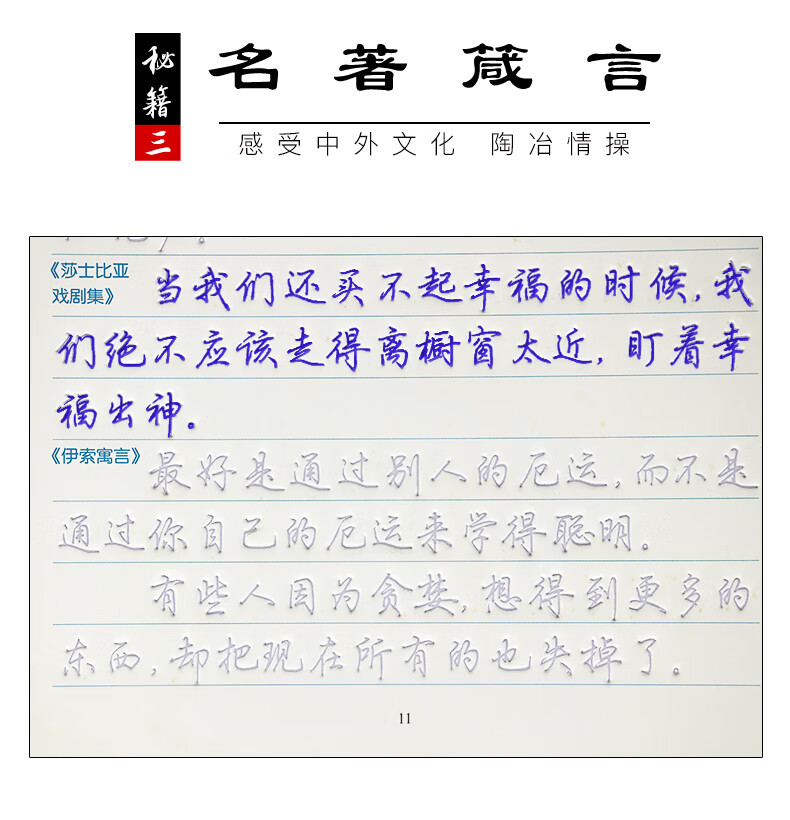 秘籍三
名著箴言
感受中外文化 陶冶情操
《莎士比亚
戏剧集》
当我们还买不起幸福的时候,我
们绝不应该走得离橱窗太近,盯着幸
福出神。
《伊索寓言》
最好是通过别人的厄运,而不是
通过你自己的厄运来学得聪明。
有些人因为贪婪,想得到更多的
东西,却把现在所有的也失掉了。
11